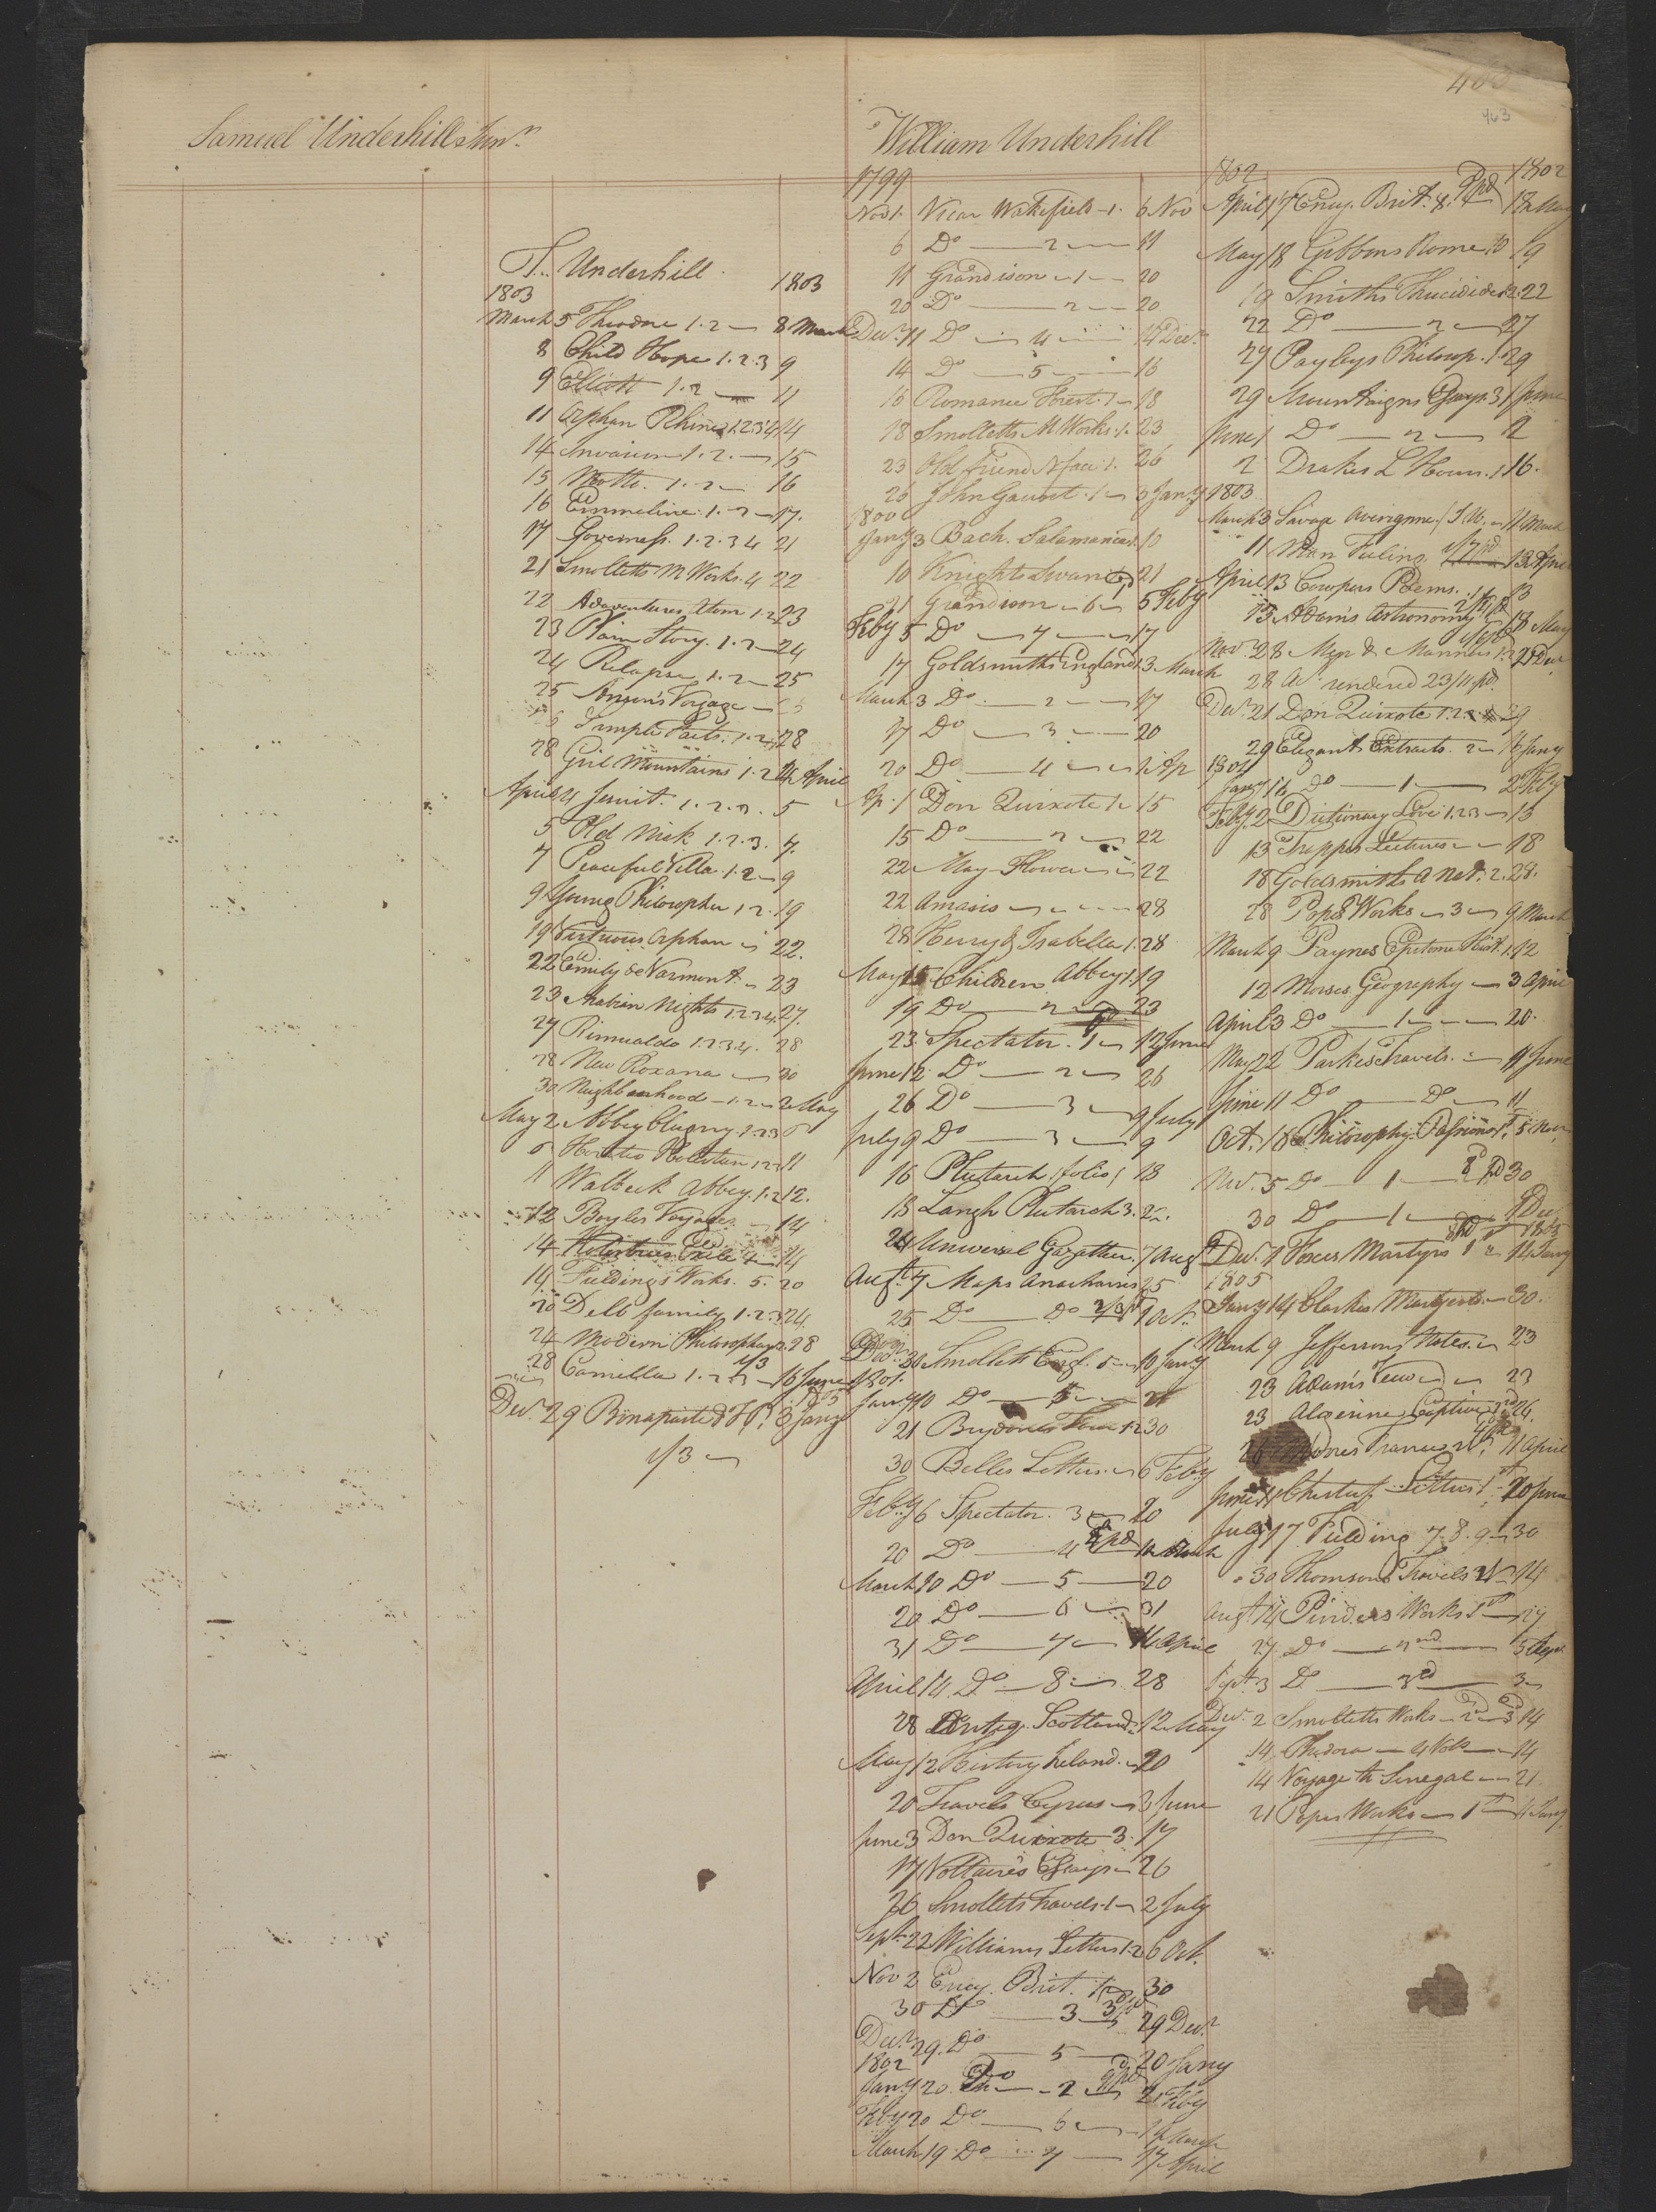 403
463
Samuel Underhill Junr
S. Underhill
1803 1803
March 5 Theodore 1.2 8 March
8 Child Hope 1.2.3 9
9 Elliott 1.2 11
11 Orphan Rhine 1.2.3.4 14
14 Invasion 1.2. 15
15 Motto. 1.2 16
16 Emmeline. 1.2 17.
17 Governess. 1.2.3 4 21
21 Smolletts M Works. 4 22
22 Adventures Atom 1.2 23
23 Plain Story. 1.2 24
24 Relapse 1.2 25
25 Anson's Voyage
Simple Facts. 1.2 28
28 Girl Mountains 1.2 4 April
April 4 Jesuit. 1.2.3. 5
5 Old Nick 1.2.3. 7.
7 Peaceful Villa. 1.2 9
9 Young Philosopher 1.2. 19
19 Virtuous Orphan 22.
22 Emily de Varmont. 23
23 Arabian Nights 1.2.3.4. 27.
27 Rinualdo 1.2.3.4. 28
28 New Roxana 30
30 Neighbourhood 1.2 2 May
May 2 Abbey Clugny. 1.2.3 6
6 Horatio Holstein 1.2.3 11
11 Walbeck Abbey. 1.2 12.
12 Boyles Voyages 14
14 Exile 4 14
14 Fieldings Works. 5. 20
20 Delb family 1.2.3 24.
24 Modern Philosopher 2. 28
28 Camilla 1.2 3 1/3 16 June
Dec. 29 Bonaparte & F P. 3 Jany
1/3
William Underhill
1799
Nov 1. Vicar Wakefield 1. 6 Nov
6 Do 2 11
11 Grandison 1 20
20 Do 2 20
Decr 11 Do 4 14 Decr
14 Do 5 16
16 Romance Forest. 1 18
18 Smolletts M Works. 1. 23
23 Old friend N face 1. 26
26 John Gaunt. 1 3 Jany
1800
Jany 3 Bach. Salamanca 1. 10
10 Knights Swan 21
21 Grandison 6 5 Feby
Feby 5 Do 7 17
17 Goldsmiths England 1. 3 March
March 3 Do. 2 17
17 Do 3 20
20 Do 4 1 Ap
Ap. 1 Don Quixote 1. 15
15 Do 2 22
22 May Flower 22
22 Amasis 28
28 Henry & Isabella 1. 28
May 15 Children Abbey 1. 19
19 Do 2 23
23. Spectator. 1 12 June
June 12 Do 2 26
26 Do 3 9 July
July 9 Do 3 9
16 Plutarch folio 1 18
18 Langh Plutarch 3.
24 Universal Gazatteer. 7 Augt
Augt. 7 Maps Anacharsis 25
25 Do Do 2/3 pd 1 Oct.
Decr 30 Smollett Engl. 5 10 Jany
1801.
Jany 10 Do 5 21
21 Brydones Tour 1.2 30
30 Belles Letters. 6 Feby
Feby 6 Spectator. 3 20
20 Do 4 pd 10 March
March 10 Do 5 20
20 Do 6 31
31 Do 7 14 April
April 14. Do 8 28
28 Antiq. Scotland. 12 May
May 12 History Ireland. 20
20 Travels Cyrus 3 June
June 3 Don Quixote 3. 17
17 Voltaires Essays 26
26 Smolletts Travels 1 2 July
Sept. 22 Williams Letters 1.2 6 Oct.
Nov 2 Ency. Brit. 1 30
30 Do 3 29 Decr
Decr 29. Do 5 20 Jany
1802
Jany 20. Do 2 9 pd Feby
Feby 20 Do 6 March
March 19 Do 7 17 April
1802 1802
April 17 Ency. Brit. 8. 9 pd 18 May
May 18 Gibbons Rome 10 19
19 Smiths Thucidides 1.2. 22
22 Do 2 27
27 Payleys Philosop. 1. 29
29 Mountaigns Essays. 3 1 June
June 1 Do 2 2
2 Drakes L Hours. 1 16.
1803
March 3 Savage Averignne. 11 March
11 Man Feeling 1/7 pd 13 April
April 13 Cowpers Poems. 13
13 Adams Astronomy 18 May
Nov. 28 Men & Manners 1.2 21 Dec.
28 Ac rendered 23/11 pd.
Decr 21 Don Quixote 1.2.3 29
29 Elegant Extracts. 2 16 Jany
1804
Jany 16 do 1 2 Feby
Feby. 2 Dictionary Love 1.2.3 13
13 Trapps Lectures 18
18 Goldsmiths A Nat. 2. 28.
28 Popes Works 3 9 March
March 9 Paynes Epitome Hist. 1. 12
12 Morses Geography 3 April
April 3 Do 1 20.
May 22 Parkes Travels. 11 June
June 11 Do Do 11
Oct. 18 Philosophy Passions 1. 5 Nov.
Nov. 5 Do 1 8d pd 30
30 Do 1 7 Dec
1805
Dec. 7 Foxes Martyrs 1st 14 Jany
1805
Jany 14 Clarkes Martyrs 30.
March 9 Jeffersons Notes. 23
23 Adams View 23
23 Algerine Captive 26.
26 Moores France 2. 11 April
June 11 Chesterf. Letters 1st 20 June
July 17 Fielding 7. 8. 9 30
30 Thomsons Travels 14
Augt 14 Pindars Works 1st 27
27 Do 2nd 3 Sept
Sept. 3 Do 3rd 3
Decr. 2 Smolletts Works 2d 3d 14
14 Thedora 4 Vols 14
14 Voyage to Senegal 21
21 Popes Works 1st 4 Jany.